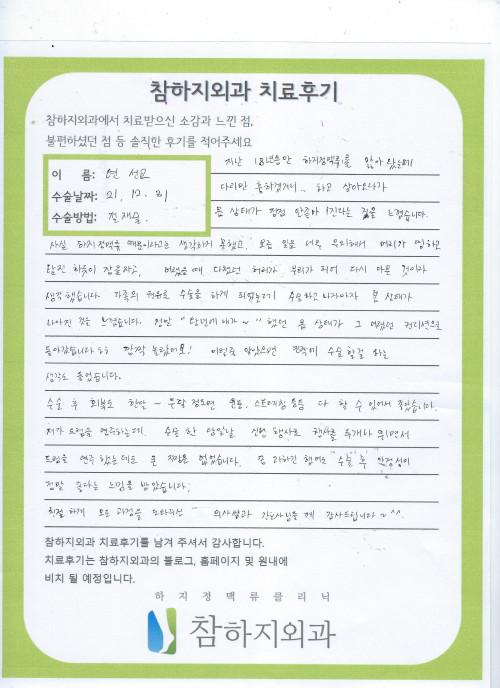 참하지외과 치료후기
참하지외과에서 치료받으신 소감과 느낀 점,
불편하셨던 점 등 솔직한 후기를 적어주세요
이 름: 연 선모
수술날짜: 21. 12. 31
수술방법: 절제술.
지난 18년동안 하지정맥류를 앓아 왔는데
다리만 흉하겠거니.. 하고 살아오다가
몸 상태가 점점 안좋아 진다는 것을 느꼈습니다.
사실 하지정맥류 때문이라고는 생각하지 못했고, 모든 일을 너무 무리해서 머리가 멍하고
담진 하룻이 잠을자고, 어렸을 때 다쳤던 허리가 무리가 되어 다시 아픈 것이라
생각 했습니다. 가족의 권유로 수술을 하게 되었는데 수술하고 나자마자 몸 상태가
나아진 것을 느꼈습니다. 정말 "한번에 내가~" 했던 몸 상태가 그 어렸던 컨디션으로
돌아갔습니다 ㅎㅎ 깜짝 놀랐어요! 이런줄 알았으면 진작에 수술할걸 하는
생각도 들었습니다.
수술 후 회복도 한달 ~ 두달 정도면 운동, 스트레칭 등등 다 할 수 있어서 좋았습니다.
제가 드럼을 연주하는데, 수술 한 당일날 신년 행사로 행사를 두개나 뛰면서
드럼을 연주 했는데도 큰 지장은 없었습니다. 좀 과하긴 했어도 "수술" 후 안정성이
정말 좋다는 느낌을 받았습니다.
친절 하게 모든 과정을 도와주신 의사쌤과 간호사님들 께 감사드립니다 ~ ^^
참하지외과 치료후기를 남겨 주셔서 감사합니다.
치료후기는 참하지외과의 블로그, 홈페이지 및 원내에
비치 될 예정입니다.
하지정맥류클리닉
참하지외과